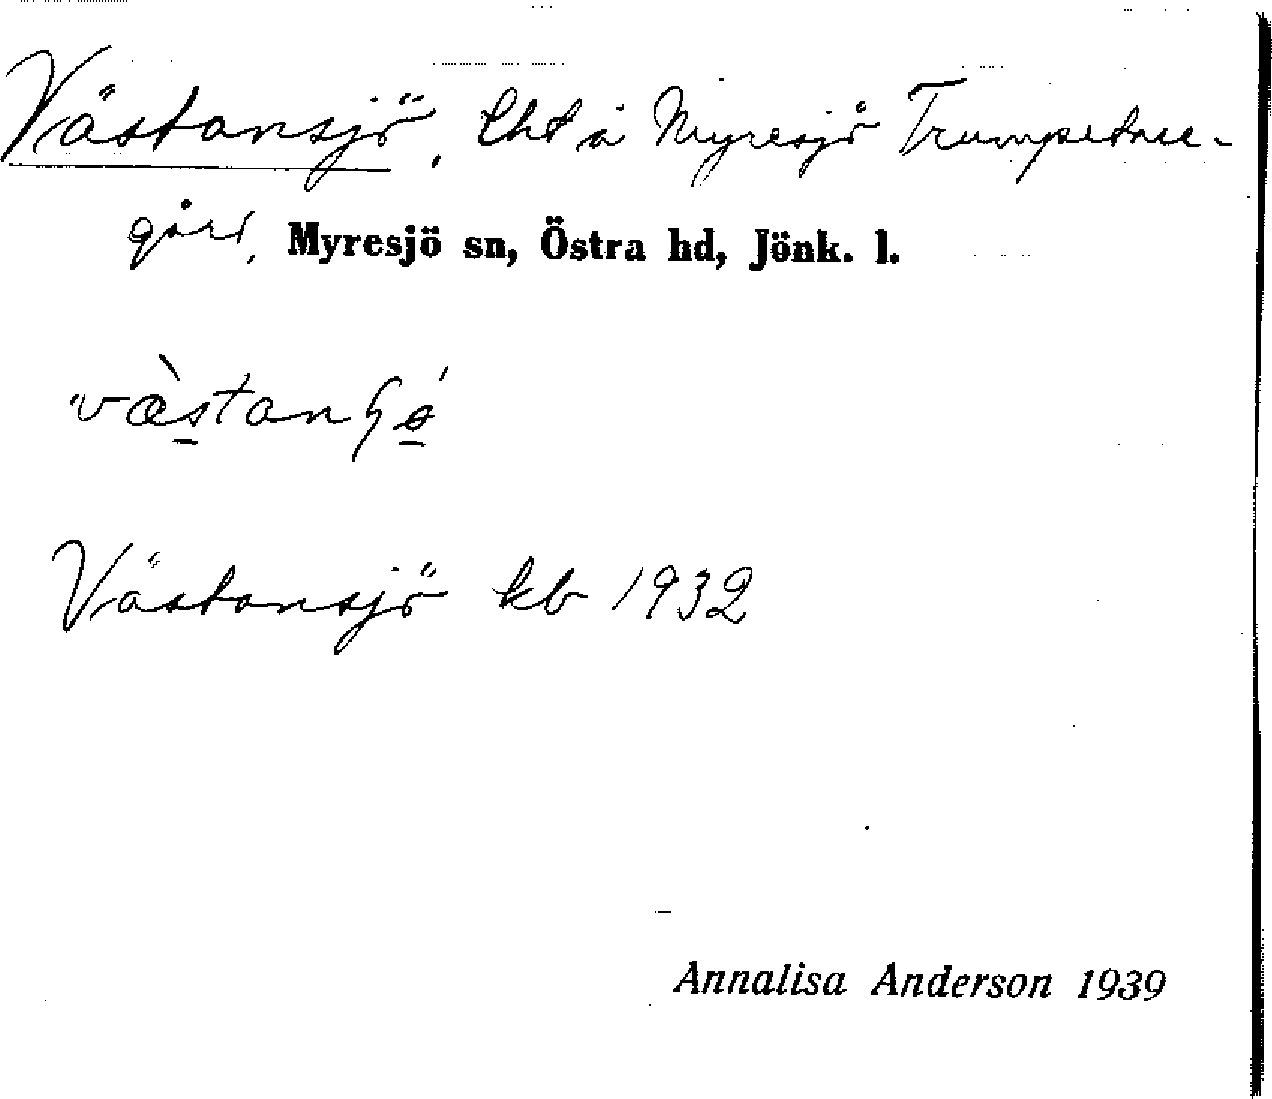 Västansjö, Lht å Myresjö Trumpetare-
gård, Myresjö sn, Östra hd, Jönk. l.
Västansjö kb 1932
Annalisa Anderson 1939